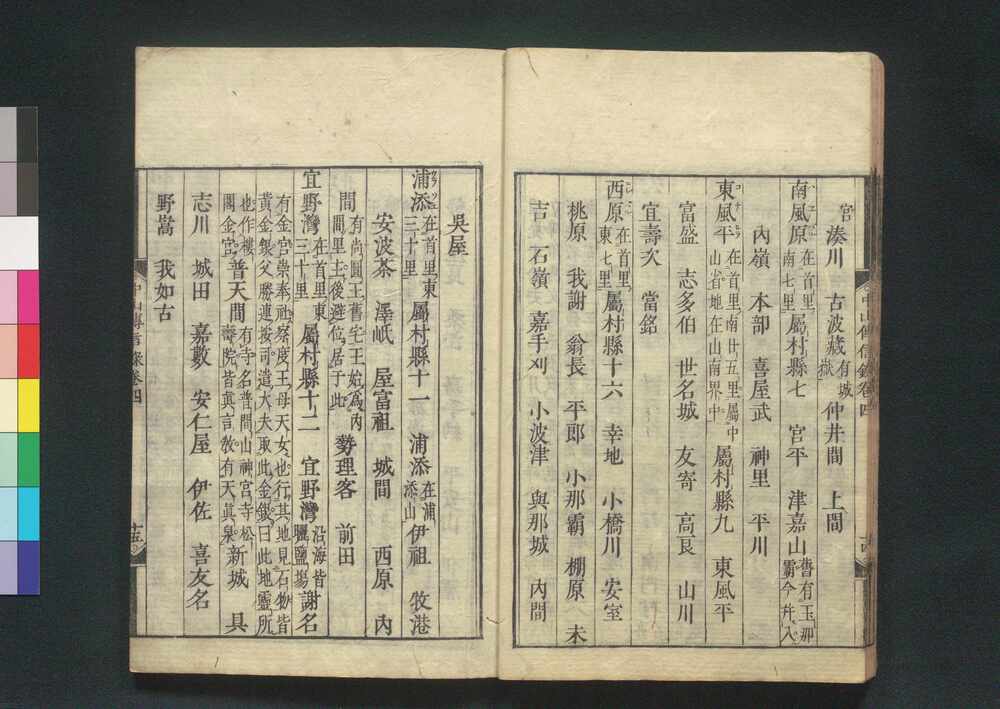 宮 湊川 古波藏有城嶽 仲井間 上間
南風原在首里南七里 屬村縣七 宮平 津嘉山舊有玉那霸今并入
内嶺 本部 喜屋武 神里 平川
東風平在首里南廿五里屬中山省地在山南界中 屬村縣九 東風平
富盛 志多伯 世名城 友寄 高良 山川
宜壽次 當銘
西原在首里東七里 屬村縣十六 幸地 小橋川 安室
桃原 我謝 翁長 平郎 小那霸 棚原 末
吉 石嶺 嘉手刈 小波津 與那城 内間
中山傳信錄卷四
吳屋
浦添在首里東三十里 屬村縣十一 浦添在浦添山 伊祖 牧港
安波茶 澤岻 屋富祖 城間 西原 内
間有尚圓王舊宅王始爲内間里主後遜位居于此 勢理客 前田
宜野灣在首里東三十里 屬村縣十二 宜野灣沿海皆曬鹽塲 謝名
有金宮崇奉社察度王母天女也行其地見石物皆
黄金銀父勝連按司遣大夫取此金銀曰此地靈所
也作樓閣金宮 普天間有寺名普間山神宮寺松壽院皆眞言敎有天眞泉 新城 具
志川 城田 嘉數 安仁屋 伊佐 喜友名
野嵩 我如古
中山傳信錄卷四